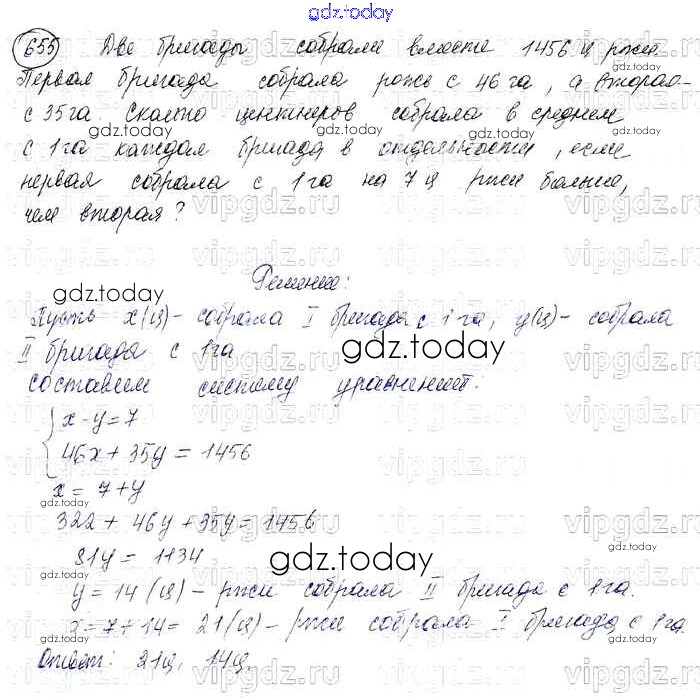 gdz.today
655 Две бригады собрали вместе 1456 ц ржи
Первая бригада собрала рожь с 46 га, а вторая -
с 35 га. Сколько центнеров собрала в среднем
с 1 га каждая бригада в отдельности, если
первая собрала с 1 га на 7 ц ржи больше,
чем вторая?
Решение:
Пусть x(ц) - собрала I бригада с 1 га, y(ц) - собрала
II бригада с 1 га
составим систему уравнений.
x - y = 7
46x + 35y = 1456
x = 7 + y
322 + 46y + 35y = 1456
81y = 1134
y = 14 (ц) - ржи собрала II бригада с 1 га.
x = 7 + 14 = 21 (ц) - ржи собрала I бригада с 1 га.
Ответ: 21ц, 14ц.
gdz.today
vipgdz.ru